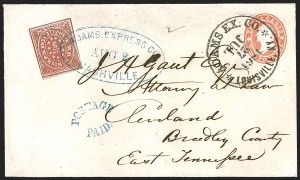 ADAMS. EXPRESS CO.
AUG
NASHVILLE
ADAMS EX. CO.
LOUISVILLE KY
J. A. Gaut Esq
Attorney at Law
Cleveland
Bradley County
East Tennessee
POSTAGE
PAID.